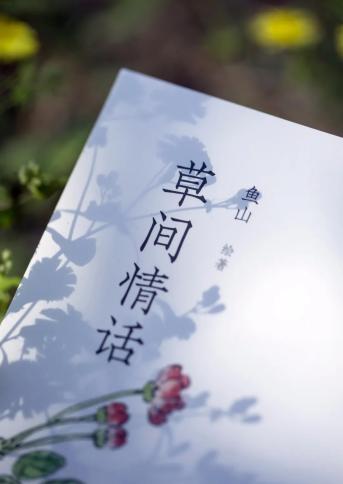 草间情话
鱼山 绘著